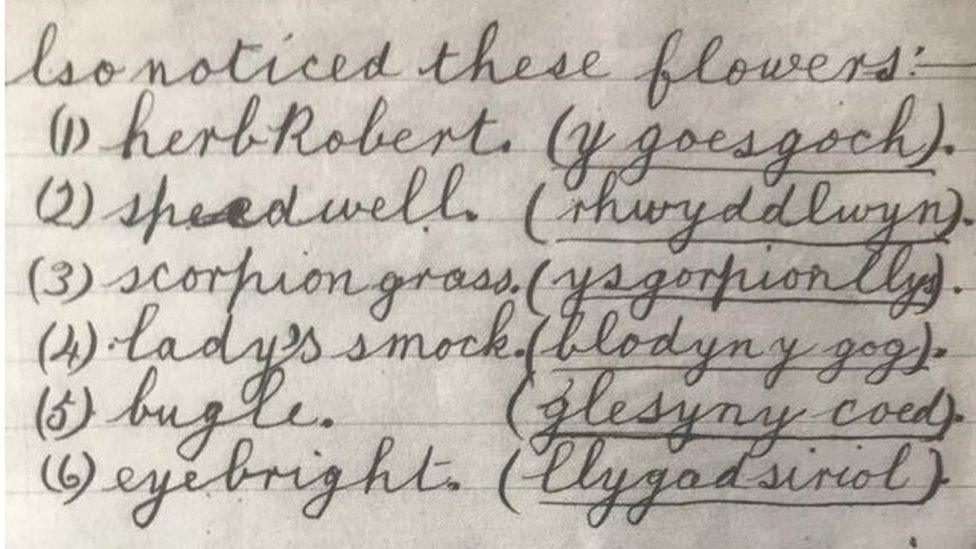 lso noticed these flowers:—
(1) herb Robert. (y goesgoch).
(2) speedwell. (rhwyddlwyn).
(3) scorpion grass. (ysgorpionllys).
(4) lady's smock. (blodyn y gog).
(5) bugle. (glesyn y coed).
(6) eyebright. (llygad siriol).